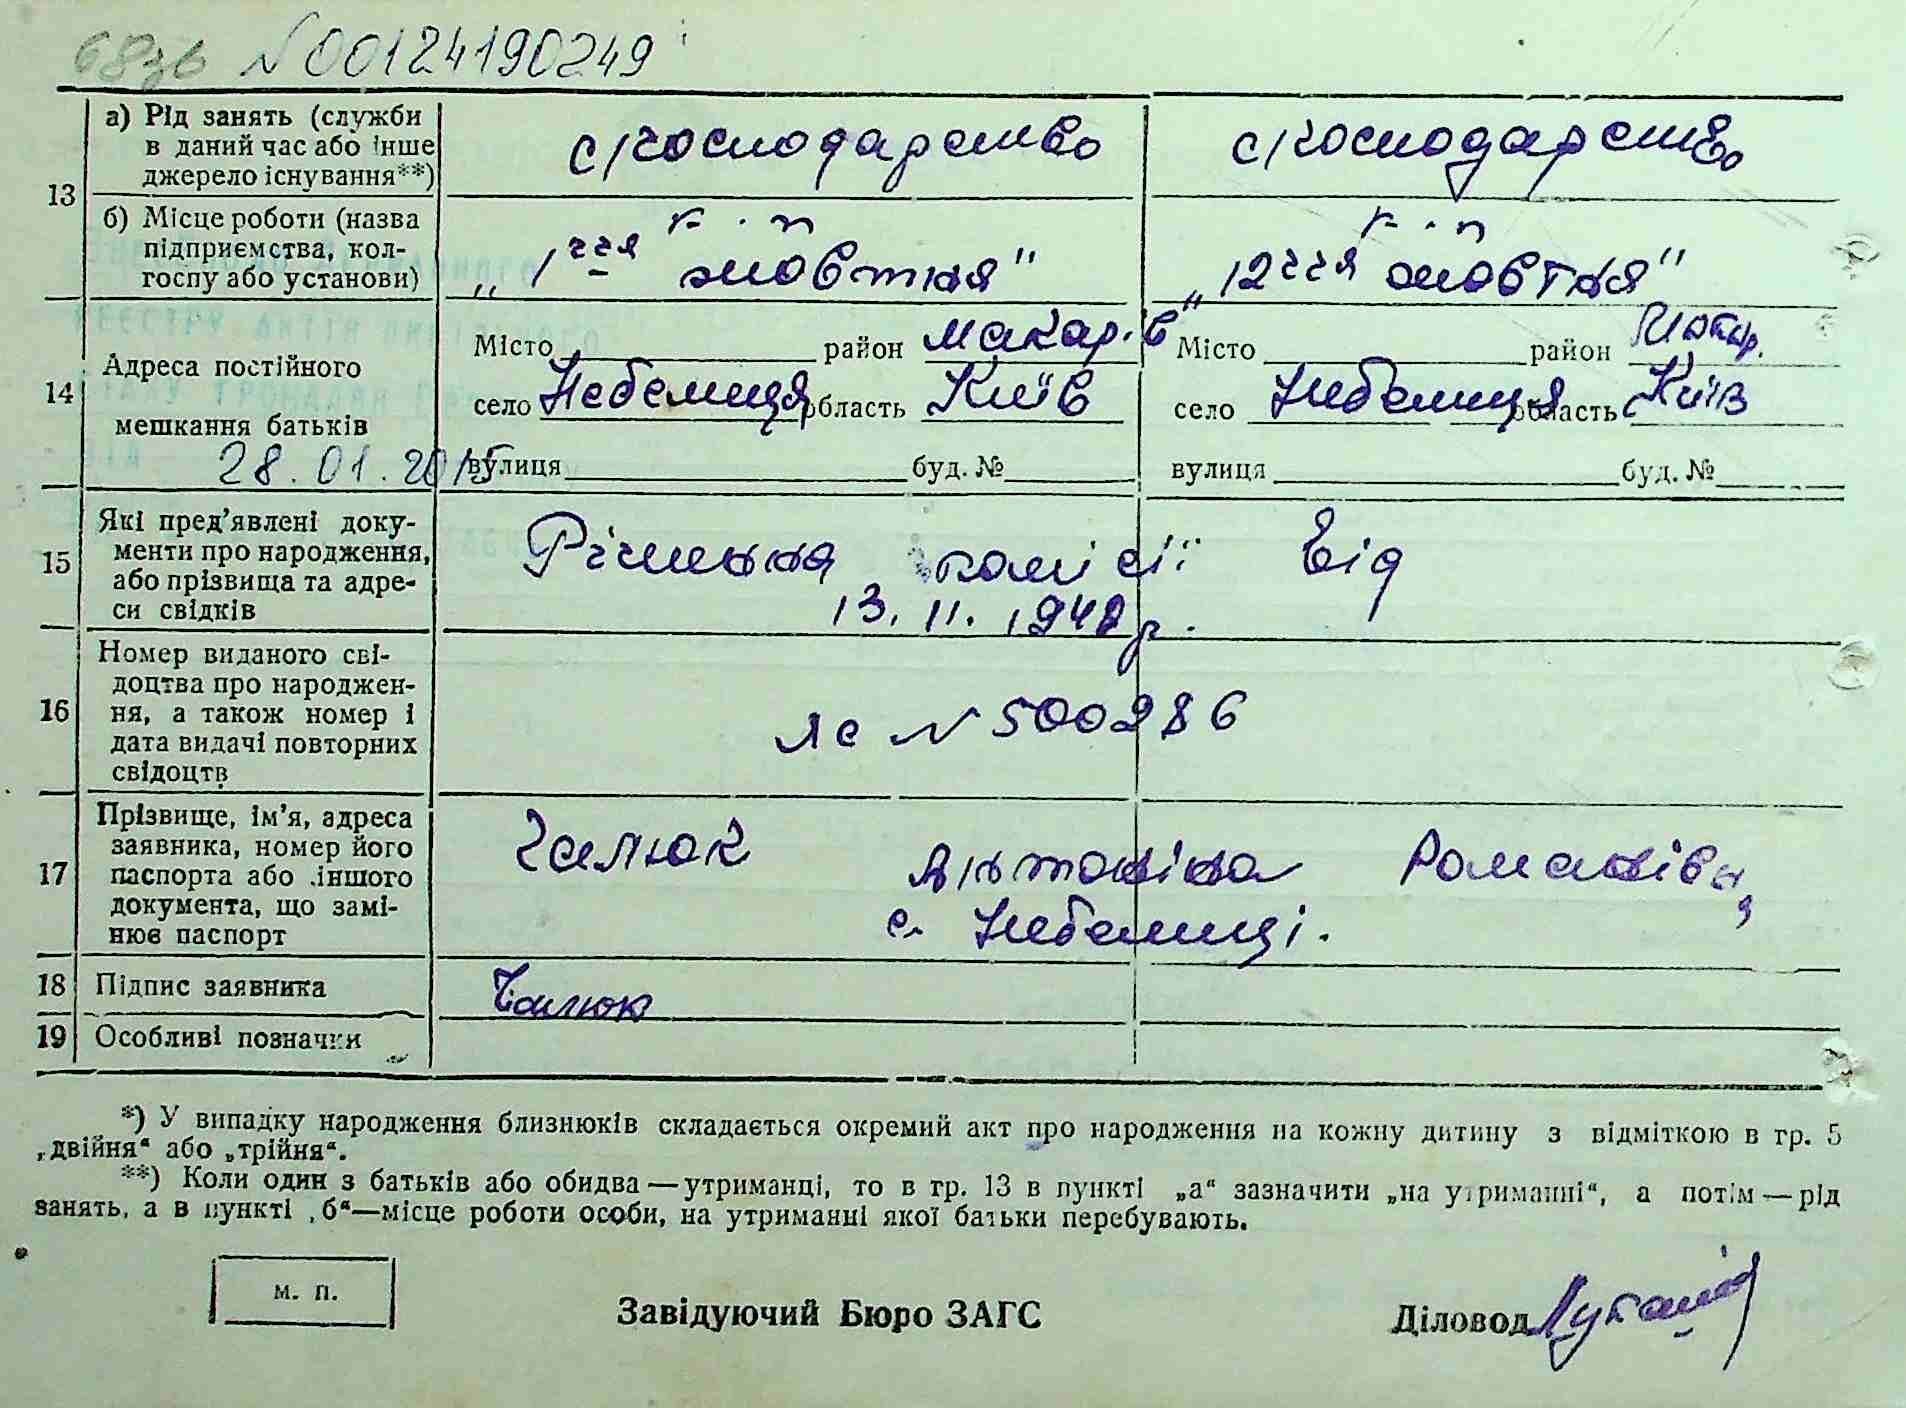 № 00124190249
а) Рід занять (служби
в даний час або інше
джерело існування**)
с/господарство
с/господарство
13
б) Місце роботи (назва
підприємства, кол-
госпу або установи)
к-п
„12ччя жовтня"
14
Адреса постійного
мешкання батьків
28.01.2015
Місто район Макар.
село Небелиця область Київ
вулиця буд. №
Місто район Макар.
село Небелиця область Київ
вулиця буд. №
15
Які пред’явлені доку-
менти про народження,
або прізвища та адре-
си свідків
Рішення комісії від
13.11.1948 р.
16
Номер виданого сві-
доцтва про народжен-
ня, а також номер і
дата видачі повторних
свідоцтв
ЯС № 500286
17
Прізвище, ім’я, адреса
заявника, номер його
паспорта або іншого
документа, що замі-
нює паспорт
Чалюк Антоніна Романівна,
с. Небелиці.
18
Підпис заявника
Чалюк
19
Особливі позначки
*) У випадку народження близнюків складається окремий акт про народження на кожну дитину з відміткою в гр. 5
„двійня“ або „трійня“.
**) Коли один з батьків або обидва — утриманці, то в гр. 13 в пункті „а“ зазначити „на утриманні“, а потім — рід
занять, а в пункті „б“—місце роботи особи, на утриманні якої батьки перебувають.
м. п.
Завідуючий Бюро ЗАГС
Діловод